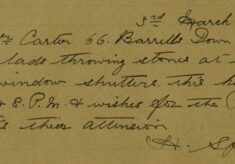 3rd March
Carter 66. Barrells Down
lads throwing stones at
window shutters, this
& 8. P.M. & wishes for the
their attension
H. Sp